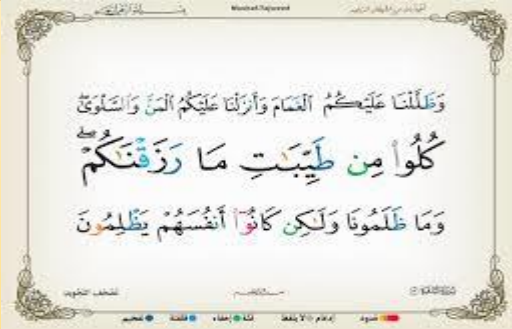 Mushaf Tajweed
وَظَلَّلْنَا عَلَيْكُمُ الْغَمَامَ وَأَنزَلْنَا عَلَيْكُمُ الْمَنَّ وَالسَّلْوَىٰ ۖ
كُلُوا۟ مِن طَيِّبَـٰتِ مَا رَزَقْنَـٰكُمْ ۖ
وَمَا ظَلَمُونَا وَلَـٰكِن كَانُوٓا۟ أَنفُسَهُمْ يَظْلِمُونَ
مصحف التجويد